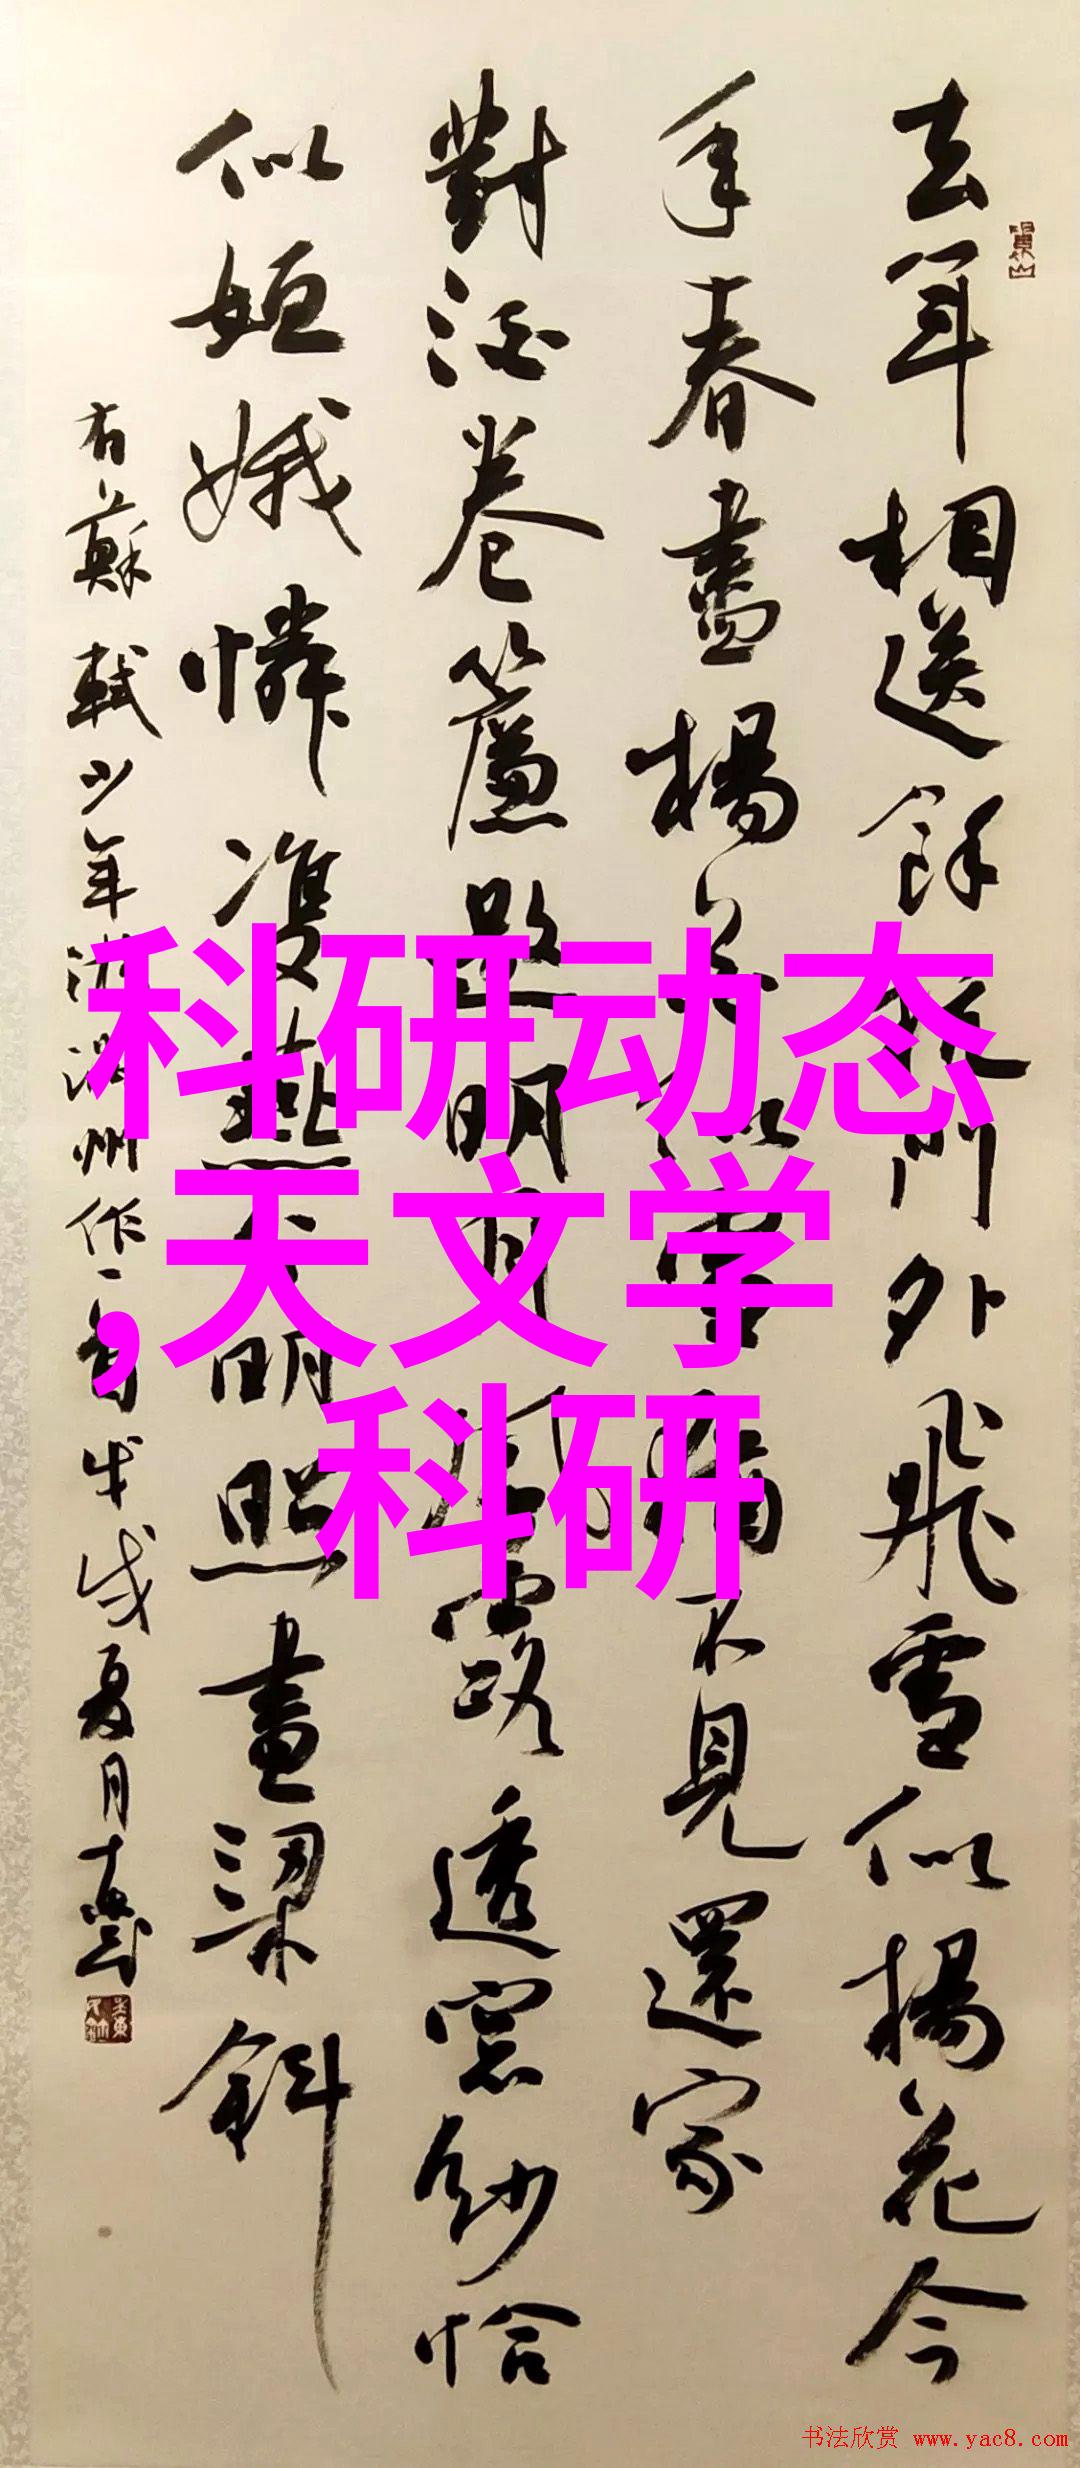 去年相送餘杭門外飛雪似楊花今
年春盡楊花似雪猶不見還家
對酒卷簾邀明月風露透窓紗恰
似姮娥憐雙燕分明照畫梁斜
右蘇軾少年游潤州作一首戊戌夏月
科研动态
,天文学
科研
书法欣赏 www.yac8.com